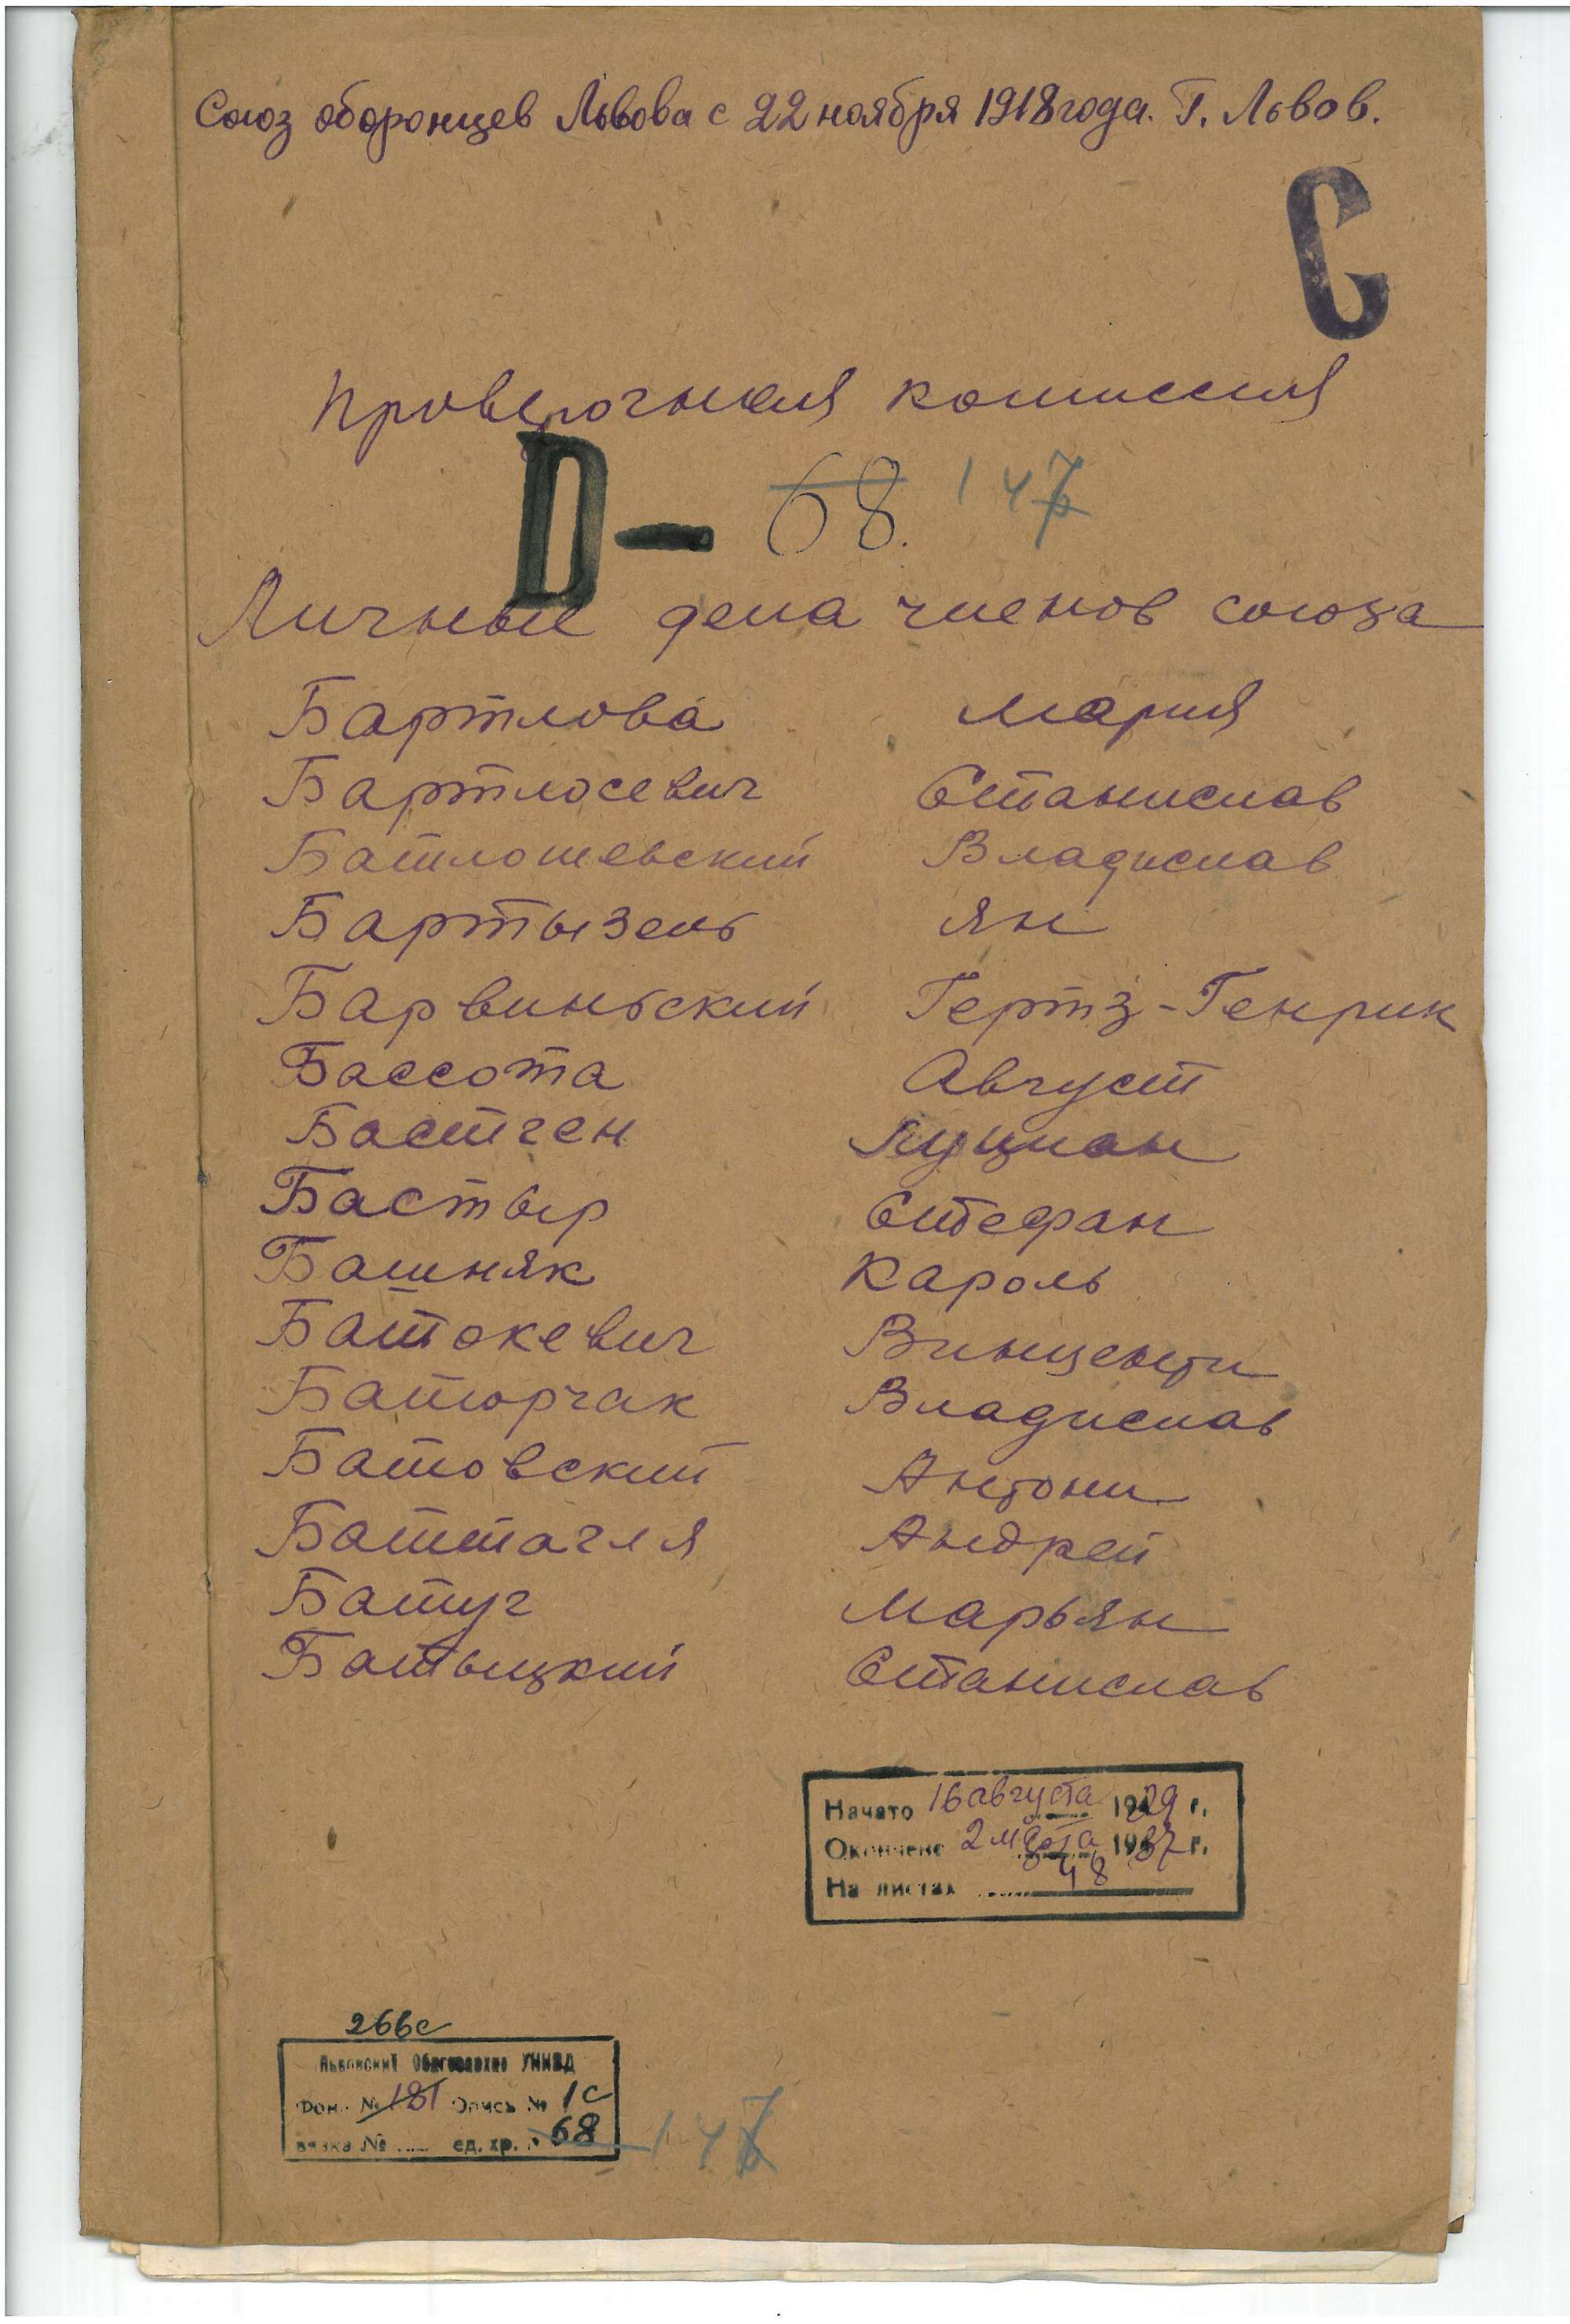 Союз оборонцев Львова с 22 ноября 1918 года. Г. Львов.
С
Проверочная комиссия
D — 68. 147
Личные дела членов союза
Бартлова Мария
Бартлосевич Станислав
Батлошевский Владислав
Бартызель Ян
Барвиньский Гертз-Генрик
Бассота Август
Бастген Луциан
Бастыр Стефан
Башняк Кароль
Батокевич Винценти
Батюрчак Владислав
Батовский Антони
Баттагля Андрей
Батуг Марьян
Батыцкий Станислав
Начато 16 августа 1929 г.
Окончено 2 марта 1937 г.
На листах 48
266с
Львовский Облгосархив УНКВД
Фонд № 181 Опись № 1с
вязка № ед. хр. № 68 147